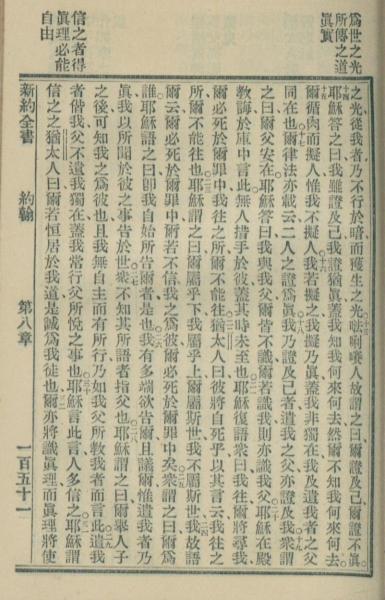 爲世之光
所傳之道
眞實
之光從我者乃不行於暗而獲生之光㗔唎㘔人故謂之曰爾證及己爾證不眞
十四
耶穌答之曰我雖證及己我證猶眞蓋我知我何來何去然爾不知我何來何去
爾循肉而擬人惟我不擬人我若擬之我擬乃眞蓋我非獨在我及遣我者之父
同在也爾律法亦載云二人之證爲眞我乃證及己者遣我之父亦證及我衆謂
之曰爾父安在耶穌答曰我與我父爾皆不識爾若識我則亦識我父耶穌在殿
教誨於庫中言此無人措手於彼蓋其時未至也耶穌復語衆曰我往爾將尋我
爾必死於爾罪中我往之所爾不能往猶太人曰彼將自死乎以其言云我往之
所爾不能往也耶穌謂之曰爾屬乎下我屬乎上爾屬斯世我不屬斯世我故語
爾云爾必死於爾罪中爾若不信我之爲彼爾必死於爾罪中矣衆謂之曰爾爲
誰耶穌語之曰卽我自始所告爾者是也我有多端欲告爾且議爾惟遣我者乃
眞我以所聞於彼之事告於世衆不知其所語者指父也耶穌謂之曰爾舉人子
之後可知我之爲彼也且我無自主而有所行乃如我父所教我者而言此遣我
者偕我父不遺我獨在蓋我常行父所悅之事也耶穌言此言人多信之耶穌謂
信之之猶太人曰爾若恒居於我道是誠爲我徒也爾亦將識眞理而眞理將使
信之者得
眞理必能
自由
新約全書 約翰 第八章 一百五十一